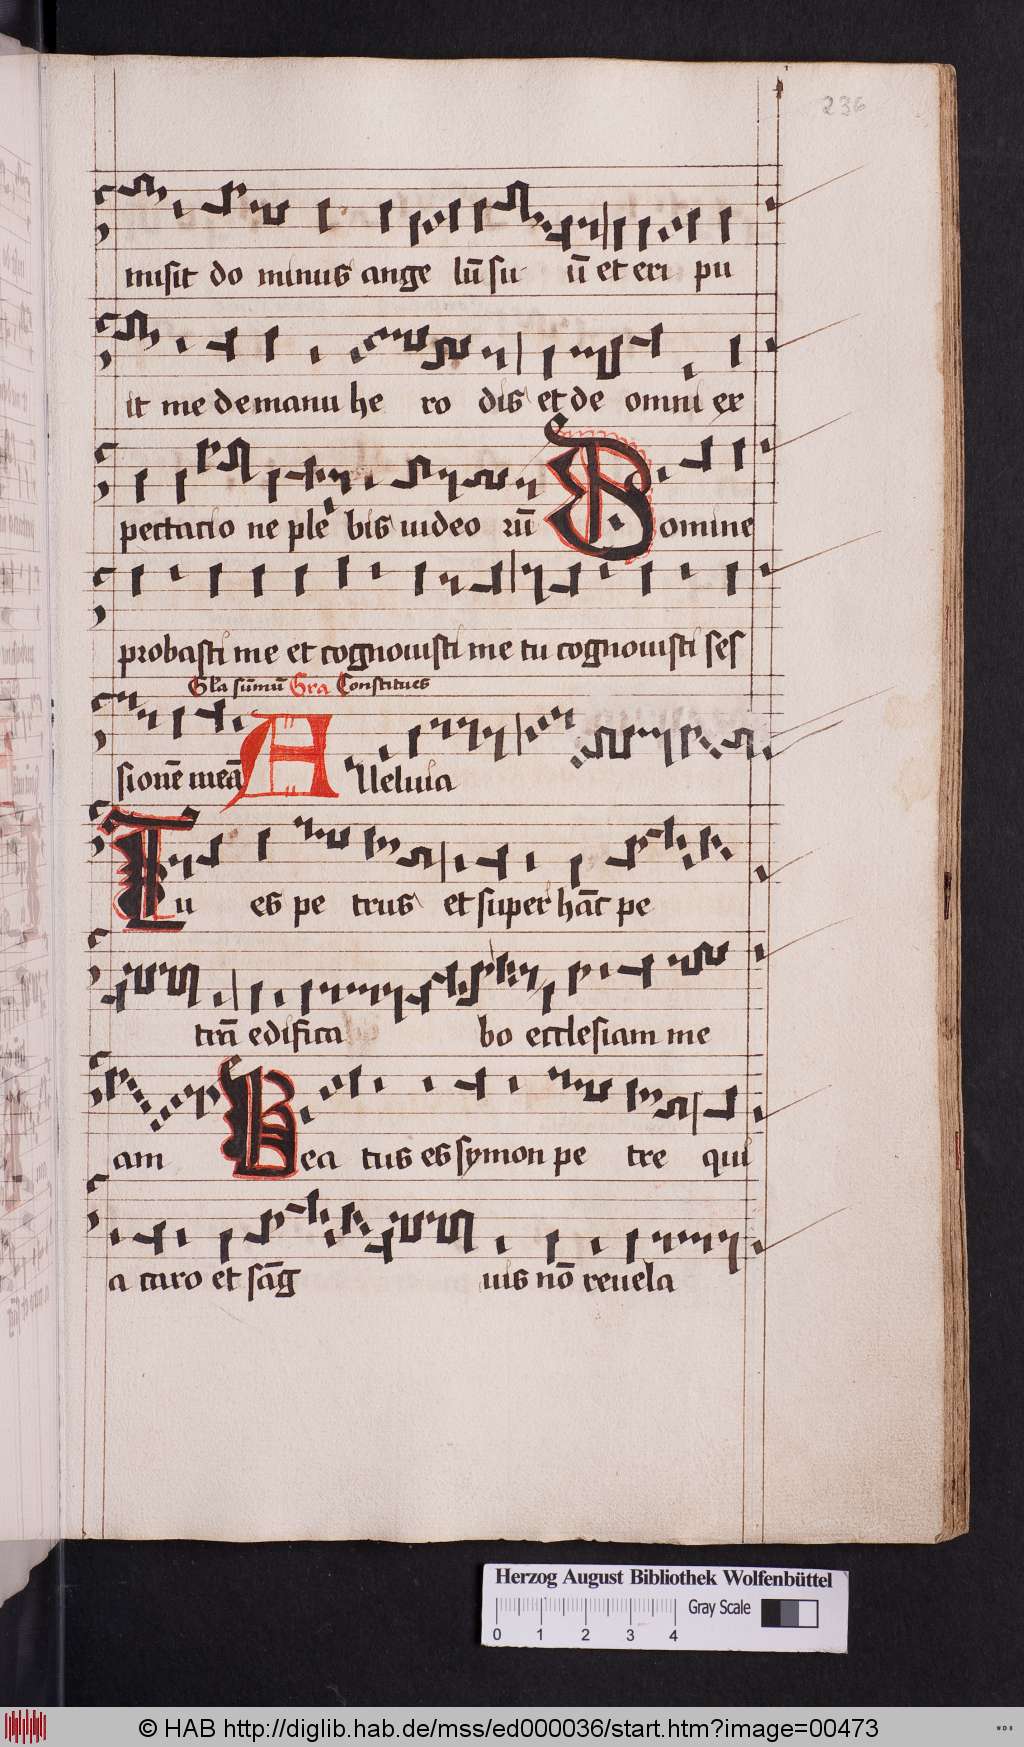 236
misit do minus ange lū su ū et eri pu
it me de manu he ro dis et de omni ex
pectacio ne ple bis iudeo rū Domine
probasti me et cognouisti me tu cognouisti ses
Gla sūmū Gra Constitues
sionē meā Alleluia
Tu es pe trus et super hāc pe
trā edifica bo ecclesiam me
am Bea tus es symon pe tre qui
a caro et sāg uis nō reuela
Herzog August Bibliothek Wolfenbüttel
Gray Scale
0 1 2 3 4
© HAB http://diglib.hab.de/mss/ed000036/start.htm?image=00473